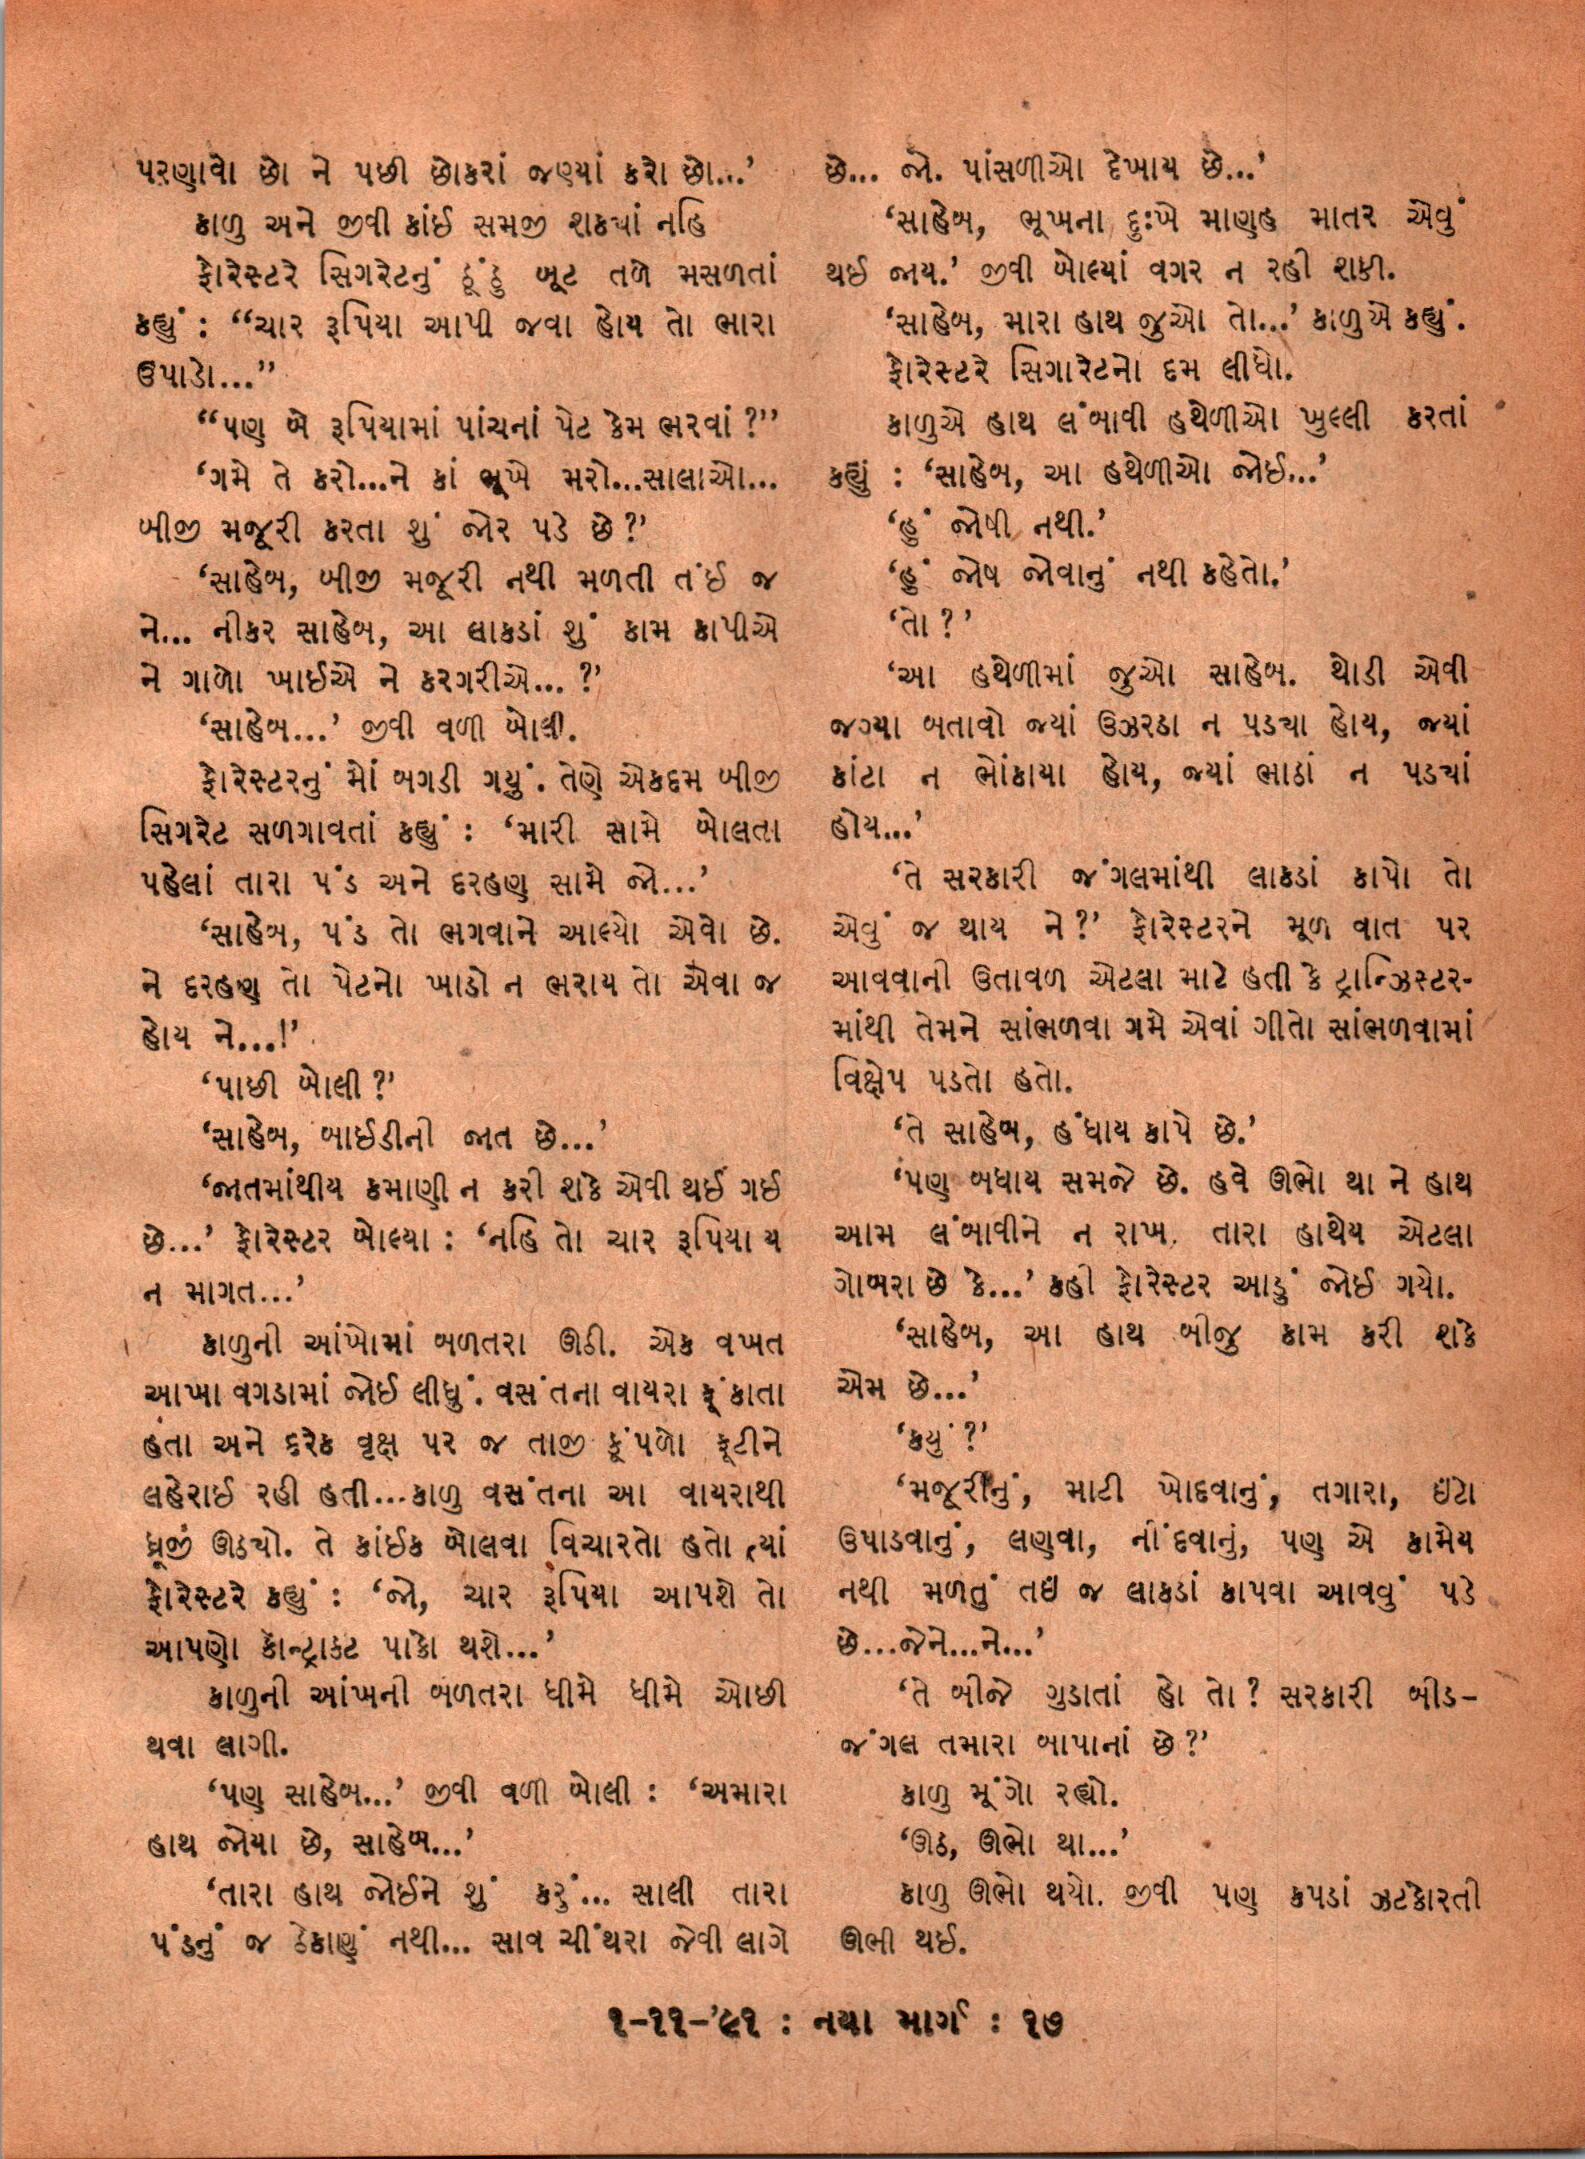 પરણાવો છો ને પછી છોકરાં જણ્યાં કરો છો...’
કાળુ અને જીવી કાંઈ સમજી શક્યાં નહિ
ફોરેસ્ટરે સિગરેટનું ઠૂંઠુ બૂટ તળે મસળતાં
કહ્યું : “ચાર રૂપિયા આપી જવા હોય તો ભારા
ઉપાડો...”
“પણ બે રૂપિયામાં પાંચનાં પેટ કેમ ભરવાં ?”
‘ગમે તે કરો...ને કાં ભૂખે મરો...સાલાઓ...
બીજી મજૂરી કરતા શું જોર પડે છે ?’
‘સાહેબ, બીજી મજૂરી નથી મળતી તંઈ જ
ને... નીકર સાહેબ, આ લાકડાં શું કામ કાપીએ
ને ગાળો ખાઈએ ને કરગરીએ... ?’
‘સાહેબ...’ જીવી વળી બોલી.
ફોરેસ્ટરનું મોં બગડી ગયું. તેણે એકદમ બીજી
સિગરેટ સળગાવતાં કહ્યું : ‘મારી સામે બોલતા
પહેલાં તારા પંડ અને દરહણ સામે જો...’
‘સાહેબ, પંડ તો ભગવાને આલ્યો એવો છે.
ને દરહણ તો પેટનો ખાડો ન ભરાય તો એવા જ
હોય ને...!’
‘પાછી બોલી ?’
‘સાહેબ, બાઈડીની જાત છે...’
‘જાતમાંથીય કમાણી ન કરી શકે એવી થઈ ગઈ
છે...’ ફોરેસ્ટર બોલ્યા : ‘નહિ તો ચાર રૂપિયા ય
ન માગત...’
કાળુની આંખોમાં બળતરા ઊઠી. એક વખત
આખા વગડામાં જોઈ લીધું. વસંતના વાયરા ફૂંકાતા
હતા અને દરેક વૃક્ષ પર જ તાજી કૂંપળો ફૂટીને
લહેરાઈ રહી હતી...કાળુ વસંતના આ વાયરાથી
ધ્રૂજી ઊઠ્યો. તે કાંઈક બોલવા વિચારતો હતો ત્યાં
ફોરેસ્ટરે કહ્યું : ‘જો, ચાર રૂપિયા આપશે તો
આપણો કોન્ટ્રાક્ટ પાકો થશે...’
કાળુની આંખની બળતરા ધીમે ધીમે ઓછી
થવા લાગી.
‘પણ સાહેબ...’ જીવી વળી બોલી : ‘અમારા
હાથ જોયા છે, સાહેબ...’
‘તારા હાથ જોઈને શું કરું... સાલી તારા
પંડનું જ ઠેકાણું નથી... સાવ ચીંથરા જેવી લાગે
છે... જો. પાંસળીઓ દેખાય છે...’
‘સાહેબ, ભૂખના દુઃખે માણહ માતર એવું
થઈ જાય.’ જીવી બોલ્યાં વગર ન રહી શકી.
‘સાહેબ, મારા હાથ જુઓ તો...’ કાળુએ કહ્યું.
ફોરેસ્ટરે સિગારેટનો દમ લીધો.
કાળુએ હાથ લંબાવી હથેળીઓ ખુલ્લી કરતાં
કહ્યું : ‘સાહેબ, આ હથેળીઓ જોઈ...’
‘હું જોષી નથી.’
‘હું જોષ જોવાનું નથી કહેતો.’
‘તો ?’
‘આ હથેળીમાં જુઓ સાહેબ. થોડી એવી
જગ્યા બતાવો જ્યાં ઉઝરઠા ન પડ્યા હોય, જ્યાં
કાંટા ન ભોંકાયા હોય, જ્યાં ભાઠાં ન પડ્યાં
હોય...’
‘તે સરકારી જંગલમાંથી લાકડાં કાપો તો
એવું જ થાય ને ?’ ફોરેસ્ટરને મૂળ વાત પર
આવવાની ઉતાવળ એટલા માટે હતી કે ટ્રાન્ઝિસ્ટર-
માંથી તેમને સાંભળવા ગમે એવાં ગીતો સાંભળવામાં
વિક્ષેપ પડતો હતો.
‘તે સાહેબ, હંધાય કાપે છે.’
‘પણ બધાય સમજે છે. હવે ઊભો થા ને હાથ
આમ લંબાવીને ન રાખ. તારા હાથેય એટલા
ગોબરા છે કે...’ કહી ફોરેસ્ટર આડું જોઈ ગયો.
‘સાહેબ, આ હાથ બીજુ કામ કરી શકે
એમ છે...’
‘કયું ?’
‘મજૂરીનું, માટી ખોદવાનું, તગારા, ઇંટો
ઉપાડવાનું, લણવા, નીંદવાનું, પણ એ કામેય
નથી મળતું તઇં જ લાકડાં કાપવા આવવું પડે
છે...જેને...ને...’
‘તે બીજે ગુડાતાં હો તો ? સરકારી બીડ-
જંગલ તમારા બાપાનાં છે ?’
કાળુ મૂંગો રહ્યો.
‘ઊઠ, ઊભો થા...’
કાળુ ઊભો થયો. જીવી પણ કપડાં ઝટકોરતી
ઊભી થઈ.
૧-૧૧-’૯૧ : નયા માર્ગ : ૧૭